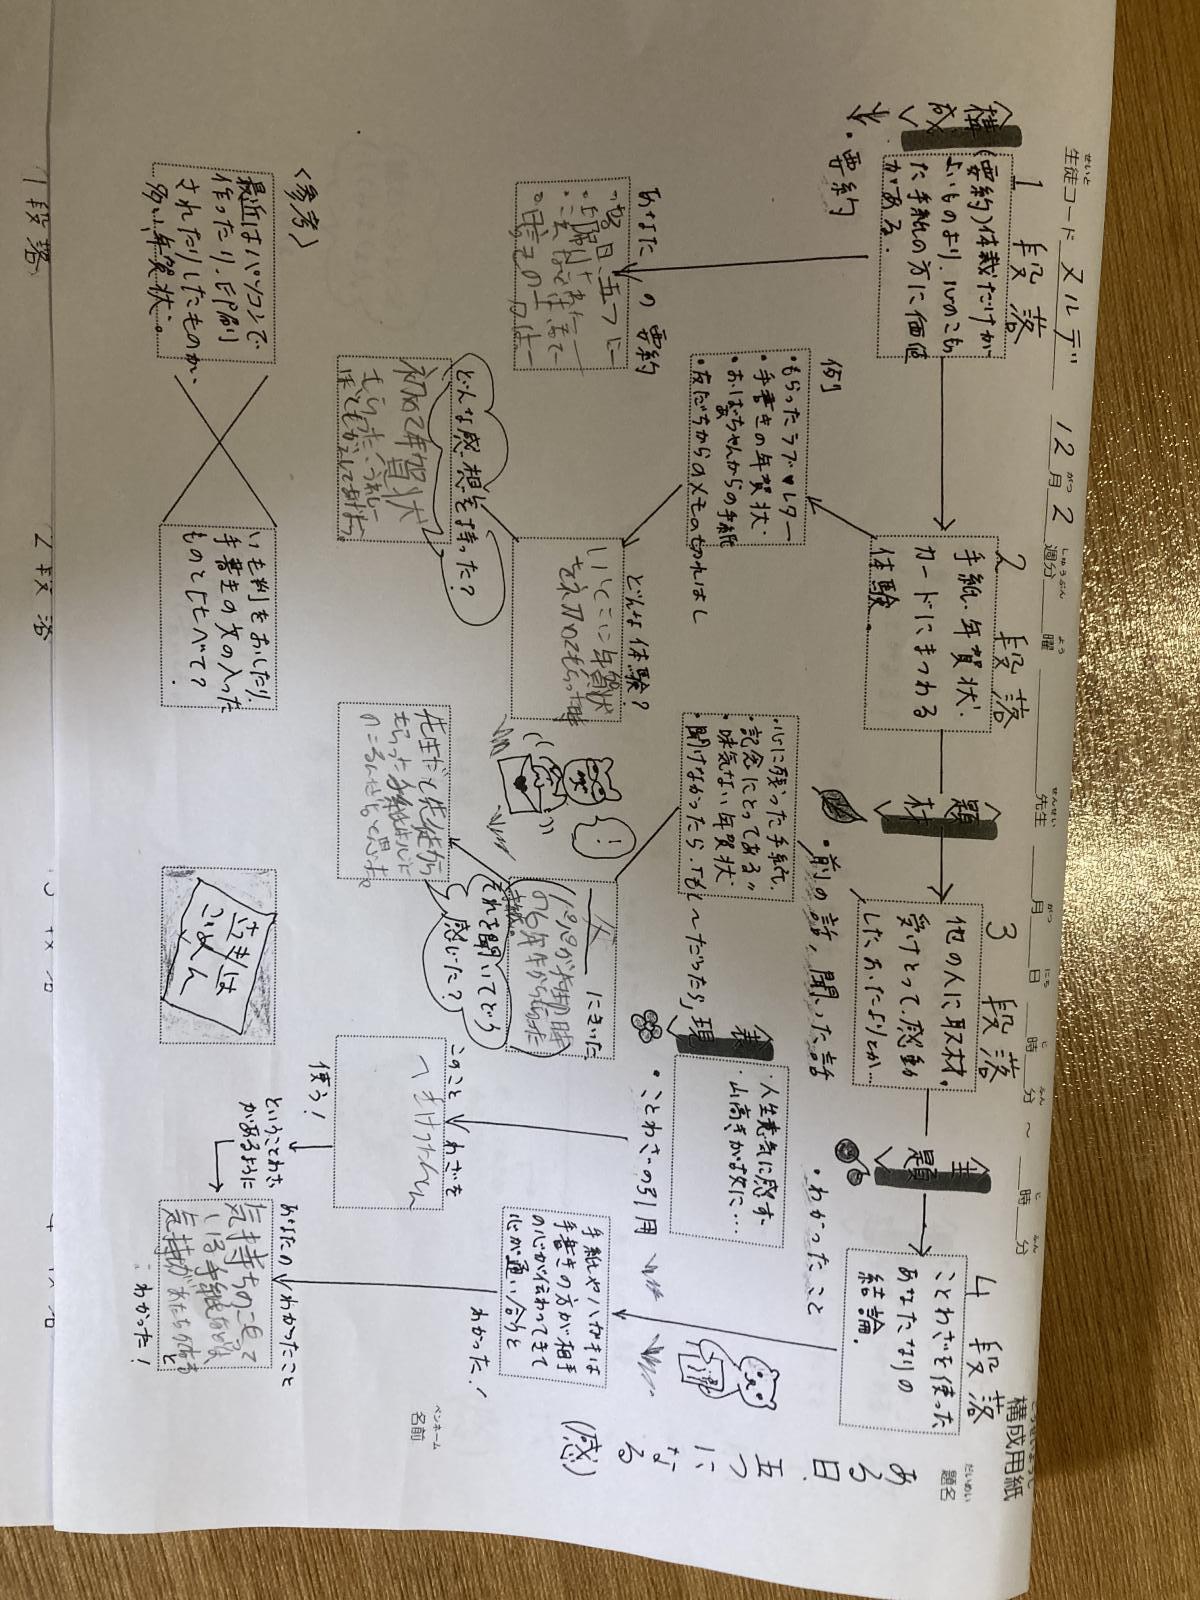 構成用紙
こうせいようし
題名
だいめい
ある日、五つになる
(感)
ペンネーム
名前
生徒コード
せいと
ヌルデ
12月2週分
曜
先生
月
日
時
分
~
時
分
<構成>
1段落
(要約)体裁だけが
よいものより、心のこもっ
た手紙の方に価値
がある。
・要約
あなたの要約
<参考>
最近はパソコンで
作ったり、印刷
されたりしたものが、
多い、年賀状。
2段落
手紙・年賀状・
カードにまつわる
体験。
例
・もらったラブ♥レター
・手書きの年賀状・
・おばあちゃんからの手紙
・友だちからのメモの切れはし
どんな体験?
いとこに年賀状
を初めてもらった時
どんな感想を持った?
初めて年賀状
もらった、うれしく
いも判をおしたり、
手書きの文の入った
ものとくらべて?
<題材>
・前の話、聞いた話
3段落
他の人に取材。
受けとって、感動
した、おたよりとか…
・心に残った手紙、
"記念にとってある"
・味気ない年賀状
・聞けなかったら、「もし〜だったら」
父にきいた
それを聞いてどう
感じた?
先生だと生徒から
もらった手紙は心に
のこるんだなと思った
!
はがきは
<表現>
・人生意気に感ず、
・山高きが故に…
・ことわざの引用
このことわざを
使う!
ということわざ
があるように
<主題>
・わかったこと
4段落
ことわざを使った
あなたなりの
結論。
手紙やハガキは
手書きの方が相手
の心が伝わってきて
心が通い合うと
わかった!
あなたのわかったこと
と
わかった!
1段落
2段落